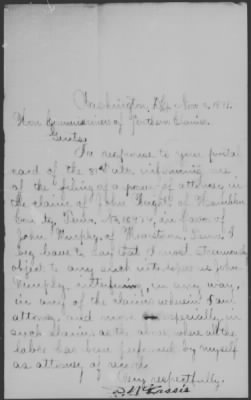 Washington, D.C. Nov 2, 1871.
Hon Commissioners of Southern Claims.
Gents:
In response to your postal
card of the 31st ult. informing me
of the filing of a power of attorney in
the claim of John Wright of Hamblen
County, Tenn. No in favor of
John Murphy, of Tenn. I
beg leave to say that I most strenuously
object to any such as John
Murphy interfering, in any way,
in any of the claims wherein I am
attorney and more especially in
such claims as the above, where all the
labor has been performed by myself
as attorney of record.
Very respectfully,